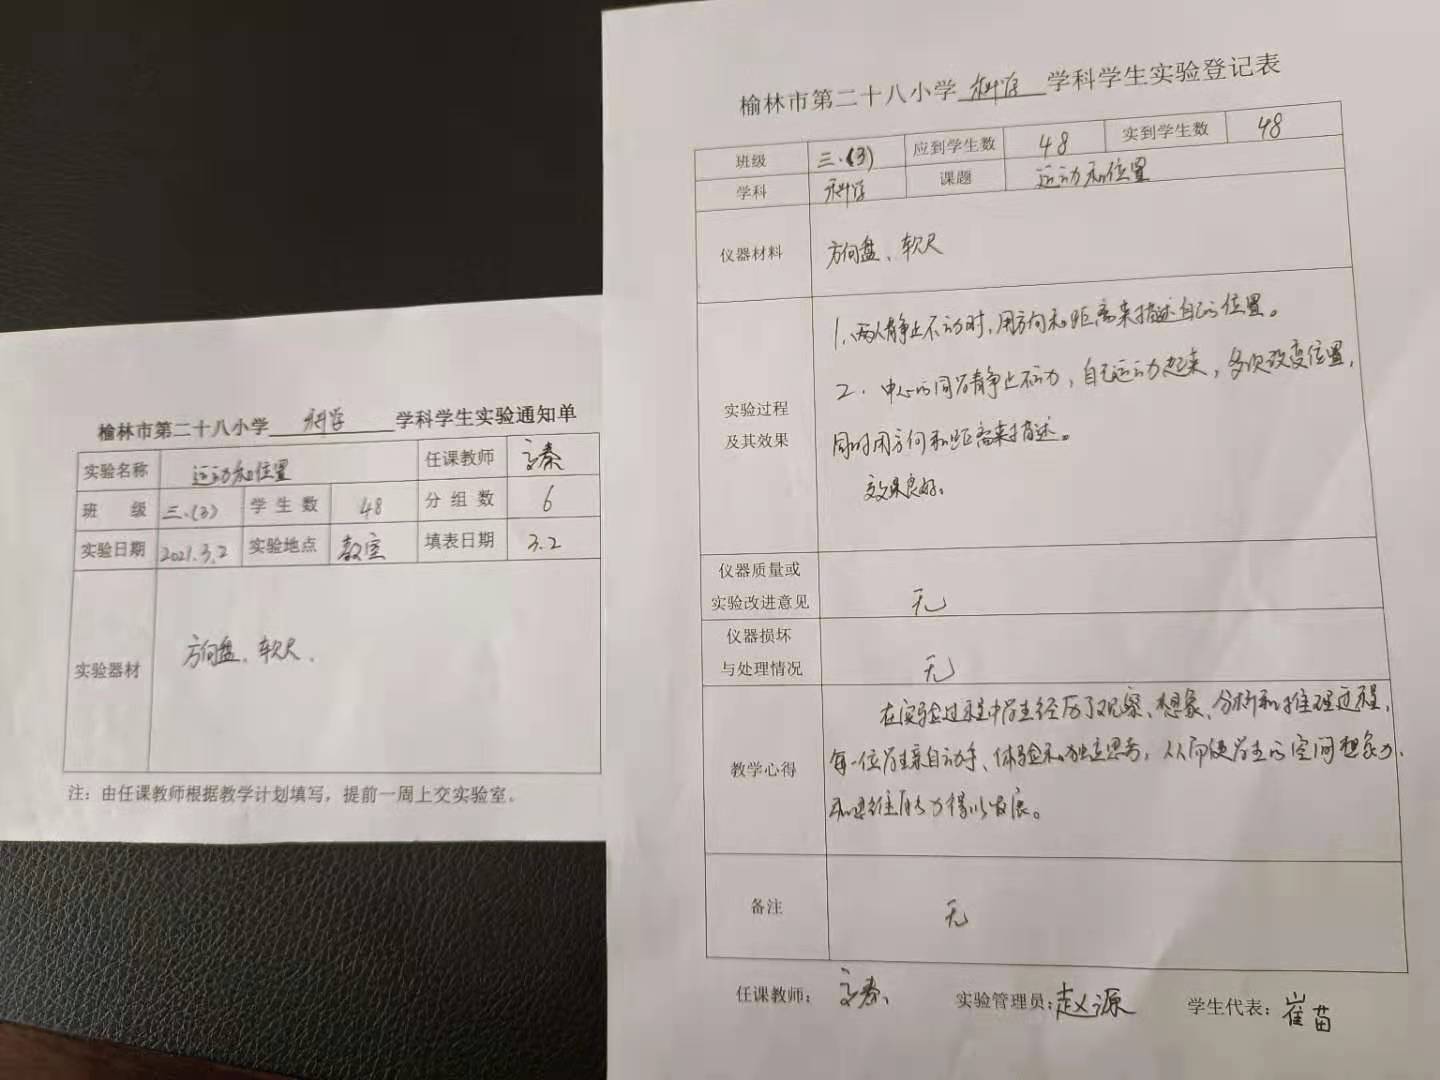 榆林市第二十八小学 科学 学科学生实验通知单
实验名称 运动和位置 任课教师 秦
班 级 三.(3) 学生数 48 分组数 6
实验日期 2021.3.2 实验地点 教室 填表日期 3.2
实验器材 方向盘、软尺、
注：由任课教师根据教学计划填写，提前一周上交实验室。
榆林市第二十八小学 科学 学科学生实验登记表
班级 三.(3) 应到学生数 48 实到学生数 48
学科 科学 课题 运动和位置
仪器材料 方向盘、软尺
实验过程
及其效果
1、两人静止不动时，用方向和距离来描述自己的位置。
2. 中心的同学静止不动，自己运动起来，多次改变位置，
同时用方向和距离来描述。
效果良好。
仪器质量或
实验改进意见
无
仪器损坏
与处理情况
无
教学心得
在实验过程中学生经历了观察、想象、分析和推理过程，
每一位学生亲自动手、体验和独立思考，从而使学生的空间想象力、
和思维能力得以发展。
备注 无
任课教师： 秦 实验管理员：赵源 学生代表：崔苗